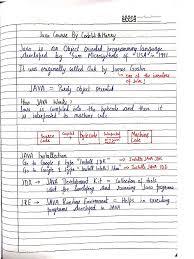 Java Course By CodeWithHarry
Java is an Object oriented programming language
developed by Sun Microsystems of USA in 1991
It was originally called Oak by James Goslin
one of the inventors
of Java!
JAVA = Purely Object Oriented
How JAVA Works?
Java is compiled into the bytecode and then it
is interpreted to machine code
Source
Code
Compiled
bytecode
Interpreted
Machine
Code
JAVA Installation
Go to Google & type "Install JDK" → Installs JAVA JDK
Go to Google & type "Install
JDK → JAVA Development Kit = Collection of tools
used for developing and running Java programs
JRE → JAVA Runtime Environment = Helps in executing
programs developed in JAVA